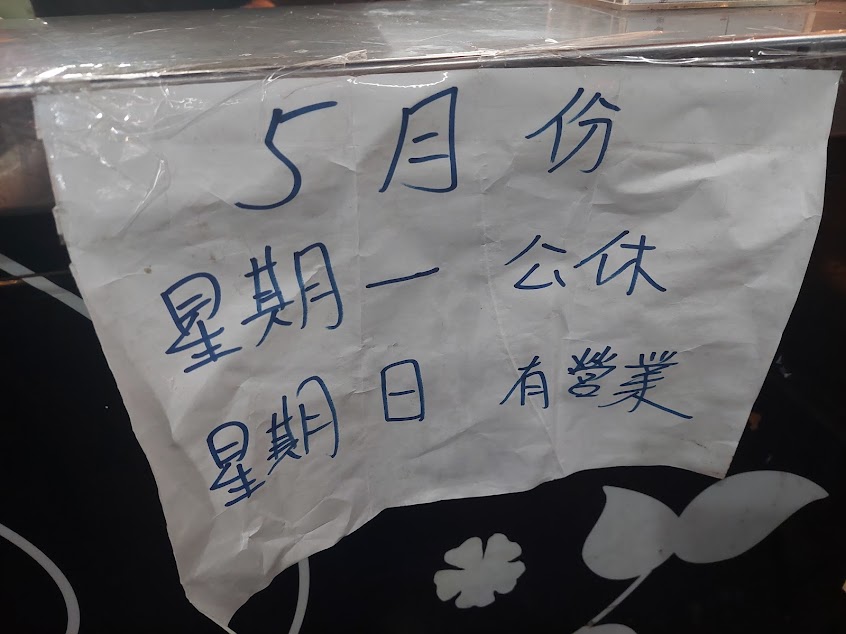 5月份
星期一 公休
星期日 有營業